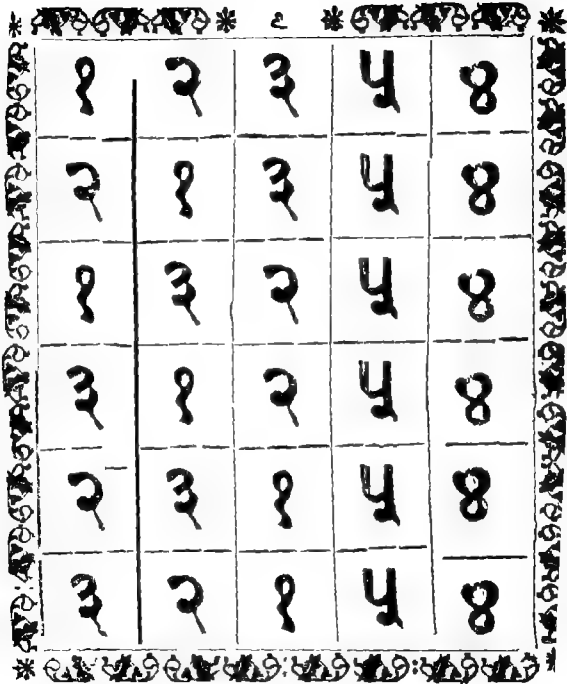 २
१ २ ३ ५ ४
२ १ ३ ५ ४
१ ३ २ ५ ४
३ १ २ ५ ४
२ ३ १ ५ ४
३ २ १ ५ ४